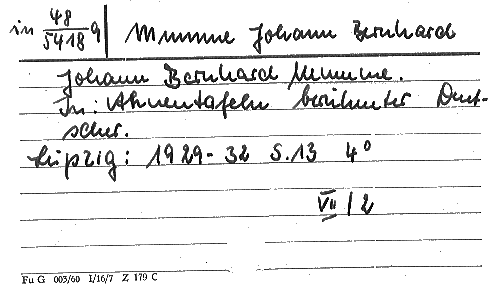 in 48/5418 q | Mumme Johann Bernhard
Johann Bernhard Mumme.
In: Ahnentafeln berühmter Deut-
scher.
Leipzig: 1929-32 S.13 4°
VII / 2
Fu G 003/60 I/16/7 Z 179 C